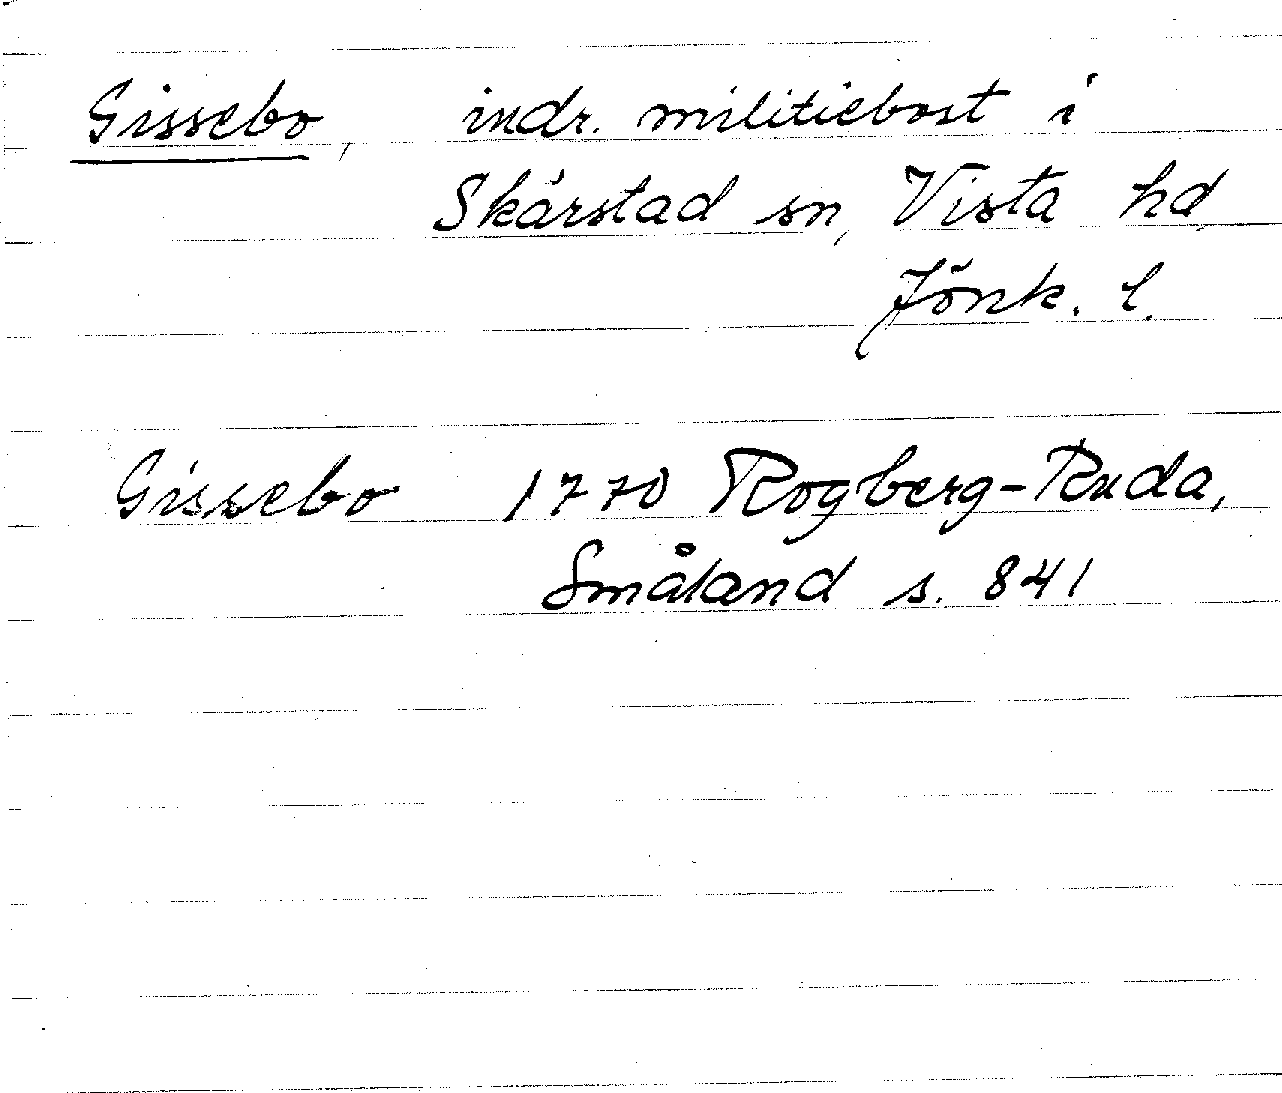 Gissebo, indr. militiebost i
Skärstad sn, Vista hd
Jönk. l.
Gissebo 1770 Rogberg-Ruda,
Småland s. 841